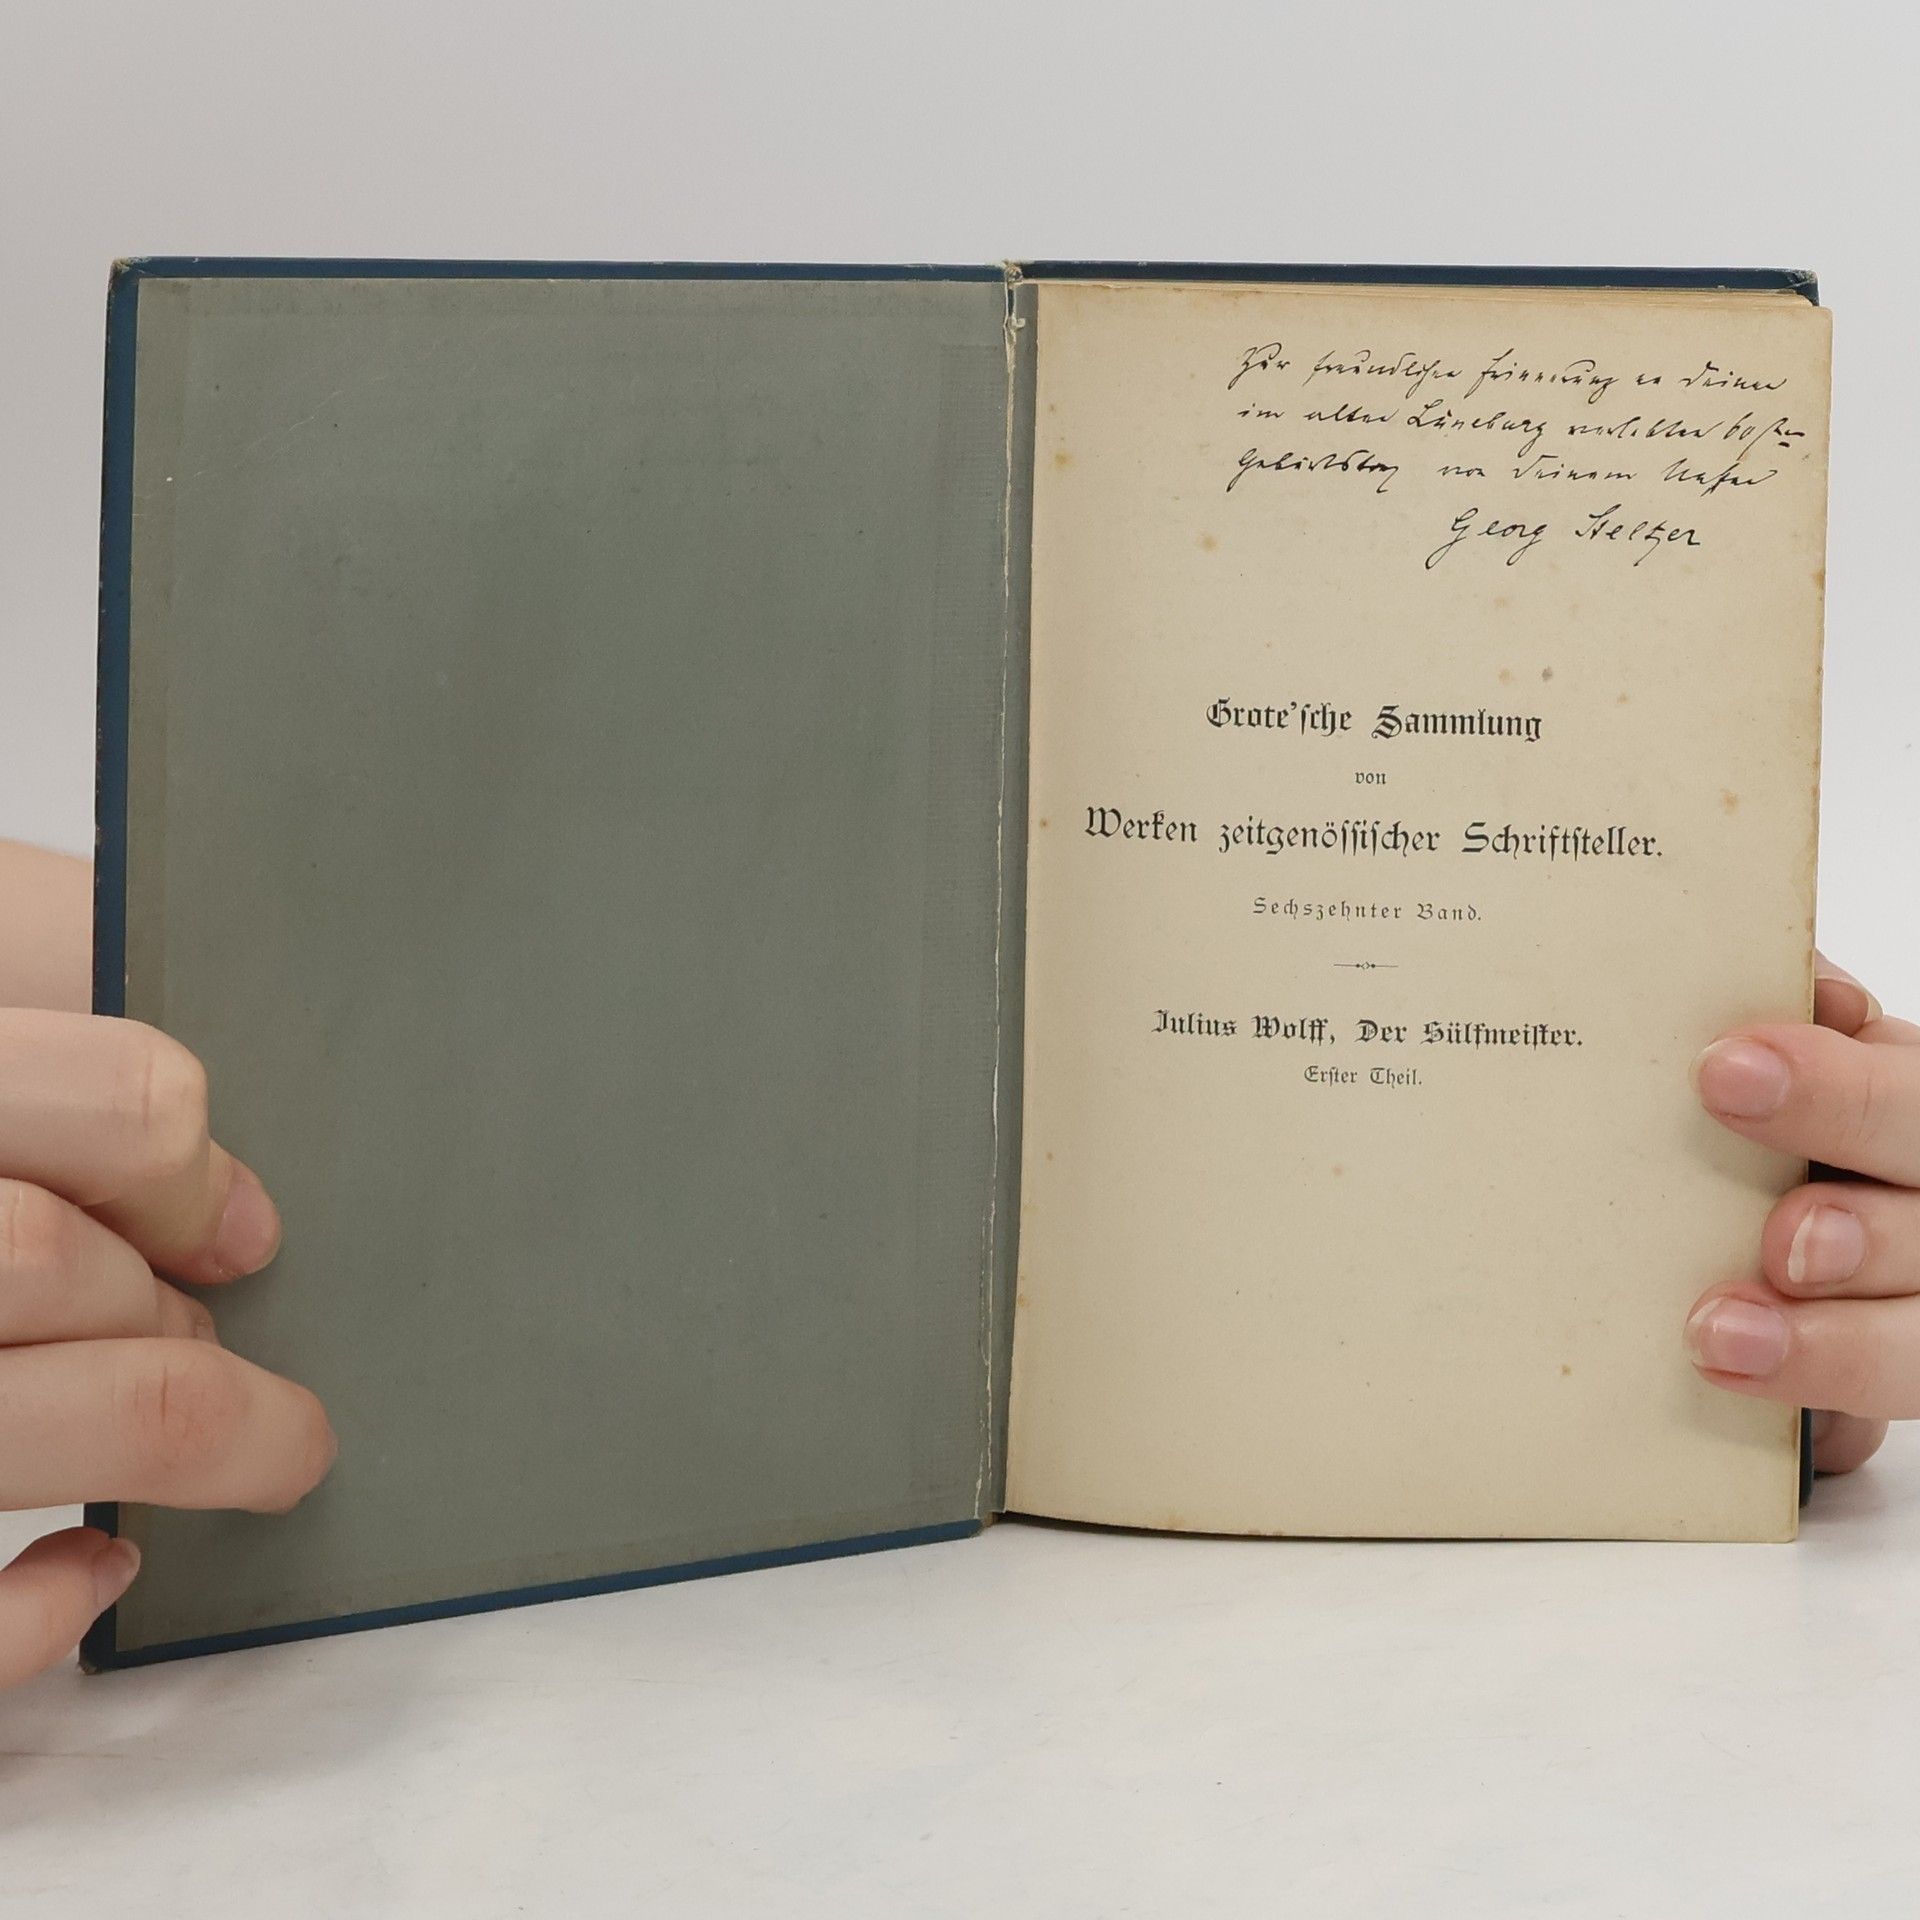 Zur freundlichen Erinnerung an Deinen
im alten Lüneburg verlebten 60sten
Geburtstag von Deinem Neffen
Georg Steltzer
Grote'sche Sammlung
von
Werken zeitgenössischer Schriftsteller.
Sechszehnter Band.
Julius Wolff, Der Sülfmeister.
Erster Theil.